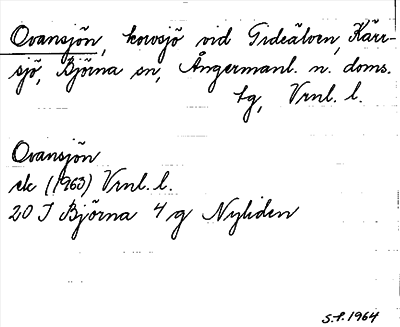 Ovansjön, korvsjö vid Gideälven, Kärr-
sjö, Björna sn, Ångermanl. n. doms.
tg, Vrnl. l.
Ovansjön
ek (1963) Vrnl. l.
20 J Björna 4 g Nyliden
S.f. 1964